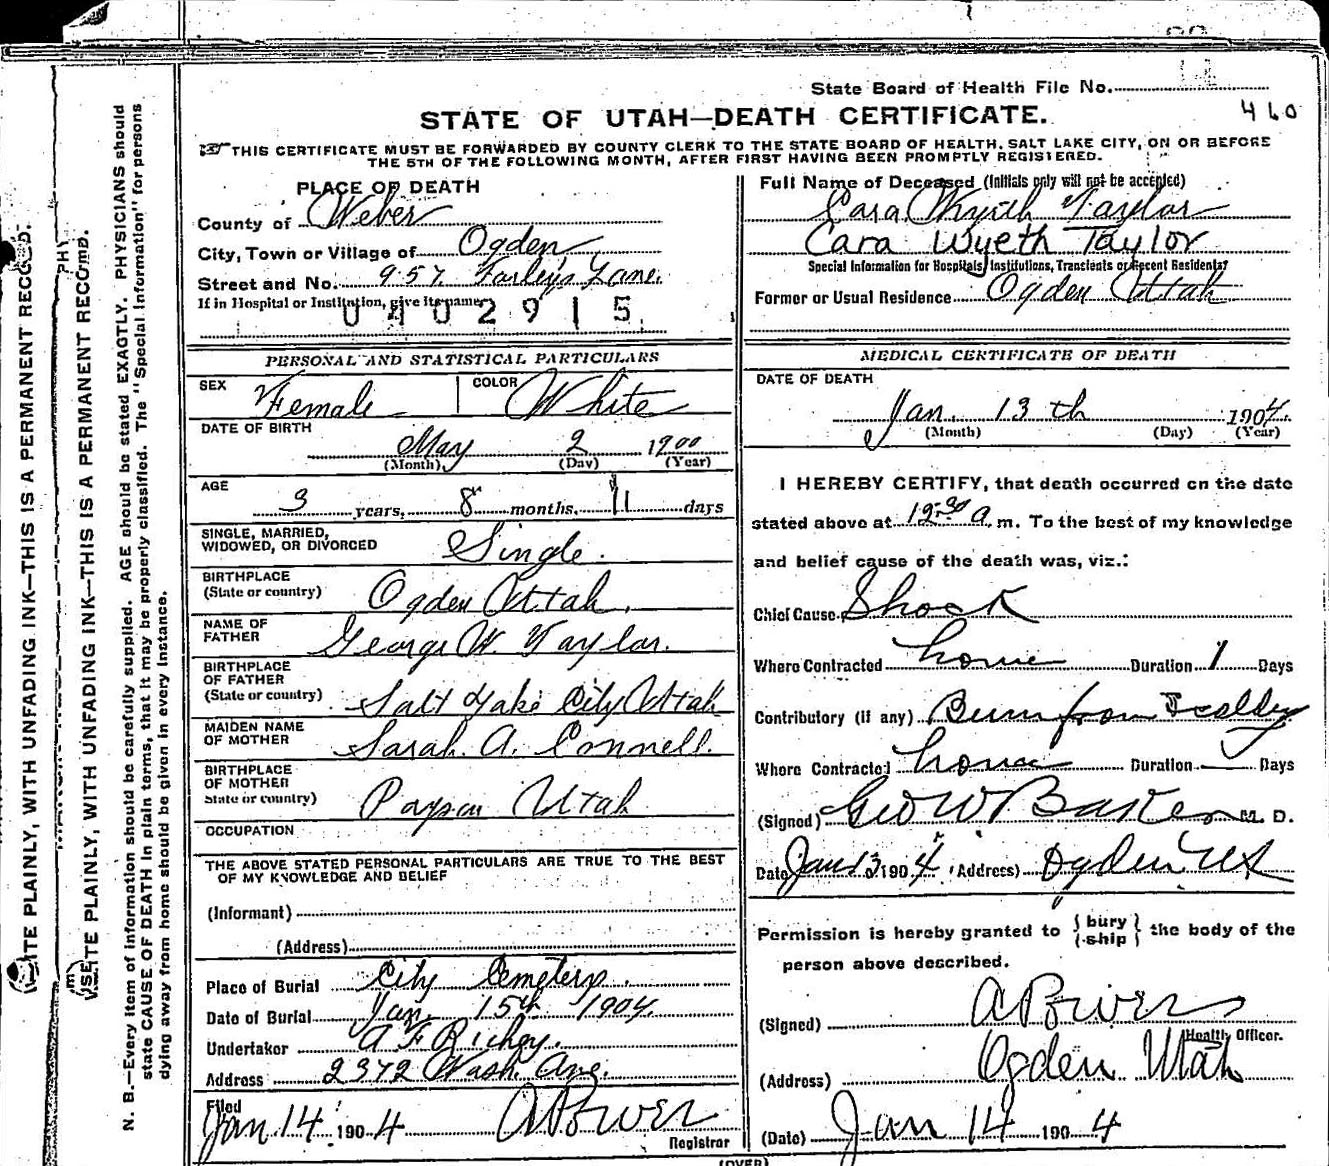 State Board of Health File No.
STATE OF UTAH—DEATH CERTIFICATE.
460
THIS CERTIFICATE MUST BE FORWARDED BY COUNTY CLERK TO THE STATE BOARD OF HEALTH, SALT LAKE CITY, ON OR BEFORE
THE 5TH OF THE FOLLOWING MONTH, AFTER FIRST HAVING BEEN PROMPTLY REGISTERED.
PLACE OF DEATH
County of Weber
City, Town or Village of Ogden
Street and No. 957 Farley's Lane.
If in Hospital or Institution, give its name
0402915
PERSONAL AND STATISTICAL PARTICULARS
SEX Female COLOR White
DATE OF BIRTH
May 2 1900
(Month) (Day) (Year)
AGE
3 years, 8 months, 11 days
SINGLE, MARRIED,
WIDOWED, OR DIVORCED Single.
BIRTHPLACE
(State or country) Ogden Utah.
NAME OF
FATHER George W. Taylor.
BIRTHPLACE
OF FATHER
(State or country) Salt Lake City Utah
MAIDEN NAME
OF MOTHER Sarah A. Connell.
BIRTHPLACE
OF MOTHER
State or country) Payson Utah
OCCUPATION
THE ABOVE STATED PERSONAL PARTICULARS ARE TRUE TO THE BEST
OF MY KNOWLEDGE AND BELIEF
(Informant)
(Address)
Place of Burial City Cemetery.
Date of Burial Jan. 15th 1904.
Undertaker A F Richey.
Address 2372 Wash. Ave.
Filed
Jan 14 1904 A Power
Registrar
Full Name of Deceased (Initials only will not be accepted)
Cara Wyeth Taylor
Cara Wyeth Taylor
Special Information for Hospitals, Institutions, Transients or Recent Residents?
Former or Usual Residence Ogden Utah
MEDICAL CERTIFICATE OF DEATH
DATE OF DEATH
Jan. 13th 1904.
(Month) (Day) (Year)
I HEREBY CERTIFY, that death occurred on the date
stated above at 12:30 a. m. To the best of my knowledge
and belief cause of the death was, viz.:
Chief Cause Shock
Where Contracted home Duration 1 Days
Contributory (if any) Burn from Scalding
Where Contracted home Duration Days
(Signed) Geo W Baker M. D.
Date Jan 13 1904 (Address) Ogden Ut
Permission is hereby granted to {bury
{ship} the body of the
person above described.
(Signed) A Power
Health Officer.
(Address) Ogden Utah
(Date) Jan 14 1904
(OVER)
WRITE PLAINLY, WITH UNFADING INK—THIS IS A PERMANENT RECORD.
WRITE PLAINLY, WITH UNFADING INK—THIS IS A PERMANENT RECORD.
N. B.—Every item of information should be carefully supplied. AGE should be stated EXACTLY. PHYSICIANS should
state CAUSE OF DEATH in plain terms, that it may be properly classified. The "Special Information" for persons
dying away from home should be given in every instance.